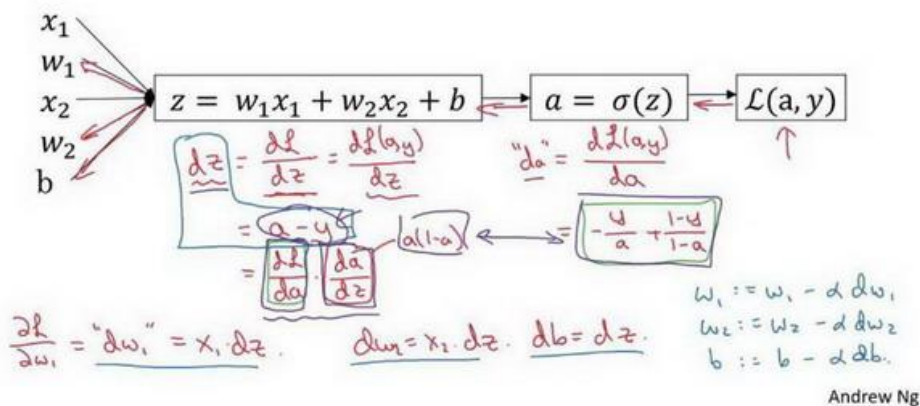 x₁
w₁
x₂
w₂
b
z = w₁x₁ + w₂x₂ + b
a = σ(z)
ℒ(a, y)
dz = dℒ/dz = dℒ(a,y)/dz
"da" = dℒ(a,y)/da
= a - y
a(1-a)
= -y/a + (1-y)/(1-a)
= dℒ/da · da/dz
∂ℒ/∂w₁ = "dw₁" = x₁·dz.
dw₂ = x₂·dz.
db = dz.
w₁ := w₁ - α dw₁
w₂ := w₂ - α dw₂
b := b - α db.
Andrew Ng